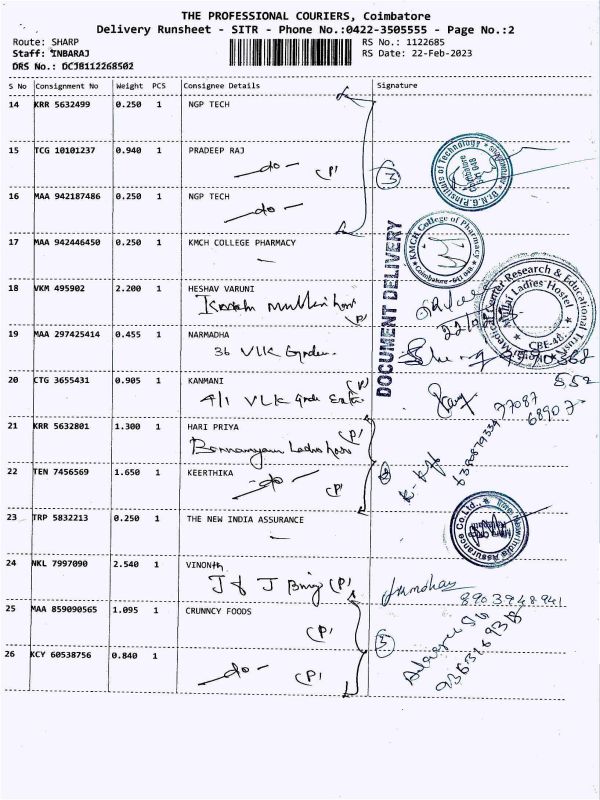 THE PROFESSIONAL COURIERS, Coimbatore
Delivery Runsheet - SITR - Phone No.:0422-3505555 - Page No.:2
Route: SHARP RS No.: 1122685
Staff: INBARAJ RS Date: 22-Feb-2023
DRS No.: DCJB112268502
S No Consignment No Weight PCS Consignee Details Signature
14 KRR 5632499 0.250 1 NGP TECH
15 TCG 10101237 0.940 1 PRADEEP RAJ
-do- (P)
16 MAA 942187486 0.250 1 NGP TECH
-do-
17 MAA 942446450 0.250 1 KMCH COLLEGE PHARMACY
KMCH College of Pharmacy
Coimbatore-641 048
DOCUMENT DELIVERY
18 VKM 495902 2.200 1 HESHAV VARUNI
(P)
Medical Center Research & Educational Trust
Mullai Ladies Hostel
19 MAA 297425414 0.455 1 NARMADHA
36 VLK Garden
20 CTG 3655431 0.905 1 KANMANI (P)
4/1 VLK
21 KRR 5632801 1.300 1 HARI PRIYA
(P)
22 TEN 7456569 1.650 1 KEERTHIKA
-do- (P)
23 TRP 5832213 0.250 1 THE NEW INDIA ASSURANCE
The New India Assurance Co.Ltd.
24 NKL 7997090 2.540 1 VINOHTH
J & J (P)
8903948941
25 MAA 859090565 1.095 1 CRUNNCY FOODS
(P) (3)
26 KCY 60538756 0.840 1
-do- (P)